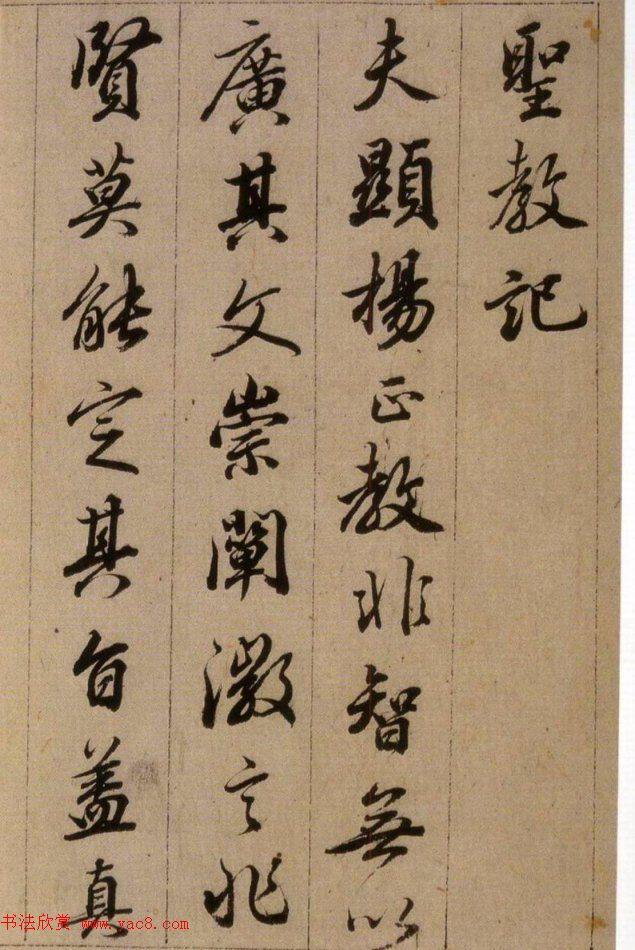 聖教記
夫顯揚正教非智無以
廣其文崇闡微言非
賢莫能定其旨蓋真
书法欣赏 www.yac8.com